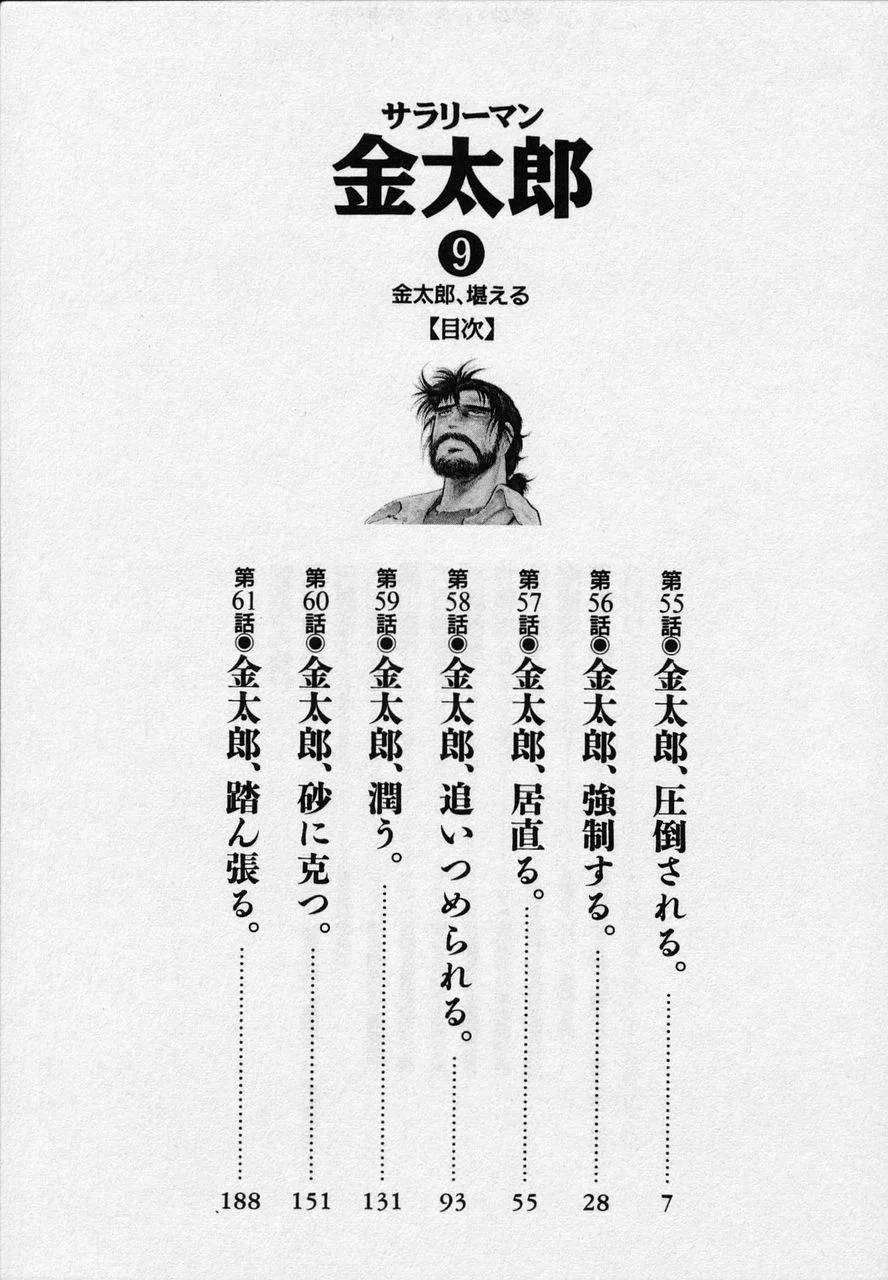 サラリーマン
金太郎
9
金太郎、堪える
【目次】
第55話◉金太郎、圧倒される。……7
第56話◉金太郎、強制する。……28
第57話◉金太郎、居直る。……55
第58話◉金太郎、追いつめられる。……93
第59話◉金太郎、潤う。……131
第60話◉金太郎、砂に克つ。……151
第61話◉金太郎、踏ん張る。……188